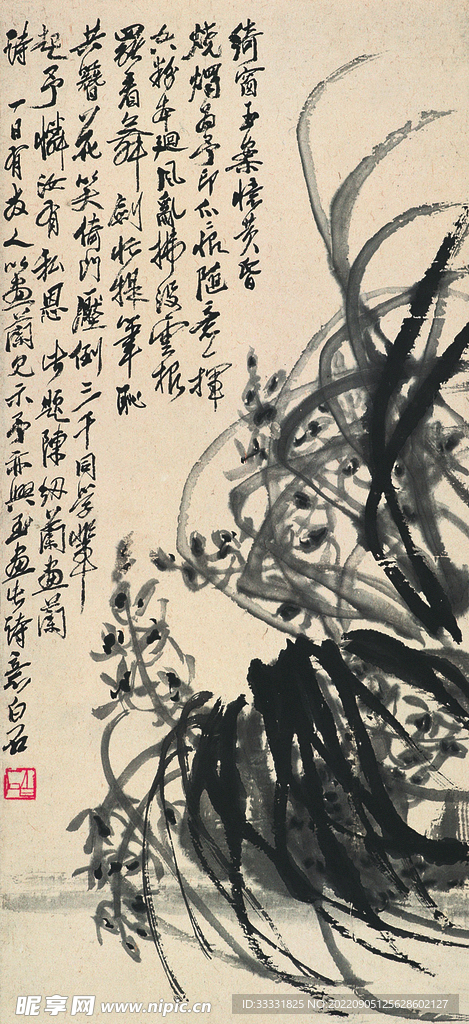 綺窗玉案憶黃昏
燒燭為予印爪痕隨意一揮
空粉本廻風亂拂沒雲根
羅看舞劍忙提筆恥
共簪花笑倚門壓倒三千同學輩
起予憐汝有私恩 出題陳紉蘭畫蘭
詩 一日有友人以畫蘭見示予亦興至畫出詩意白石
昵享网 www.nipic.cn
ID:33331825 NO:20220905125628602127